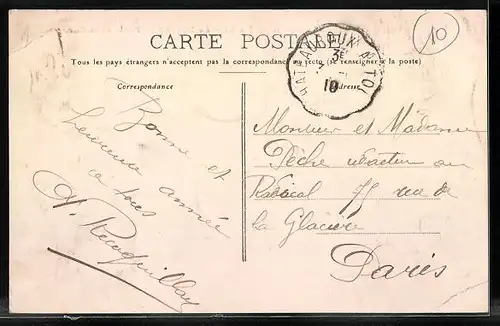 CARTE POSTALE
Tous les pays étrangers n'acceptent pas la correspondance au recto (se renseigner à la poste)
Correspondance
Adresse
CHATEAUROUX A TO
10
10
Bonne et
heureuse année
à tous
Monsieur et Madame
Pèche rédacteur au
Radical 75 rue de
la Glacière
Paris